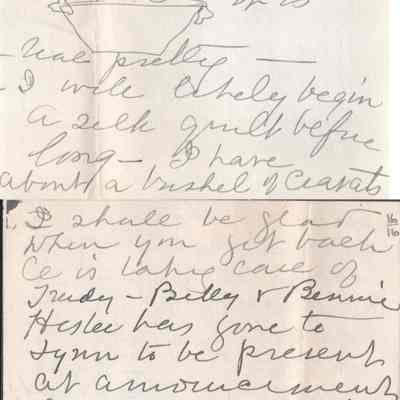 it is
real pretty —
I will likely begin
a silk quilt before
long — I have
about a bushel of cravats
I shall be glad
when you get back
Ce is taking care of
Trudy — Betty & Bennie
has gone to
Lynn to be present
at announcement